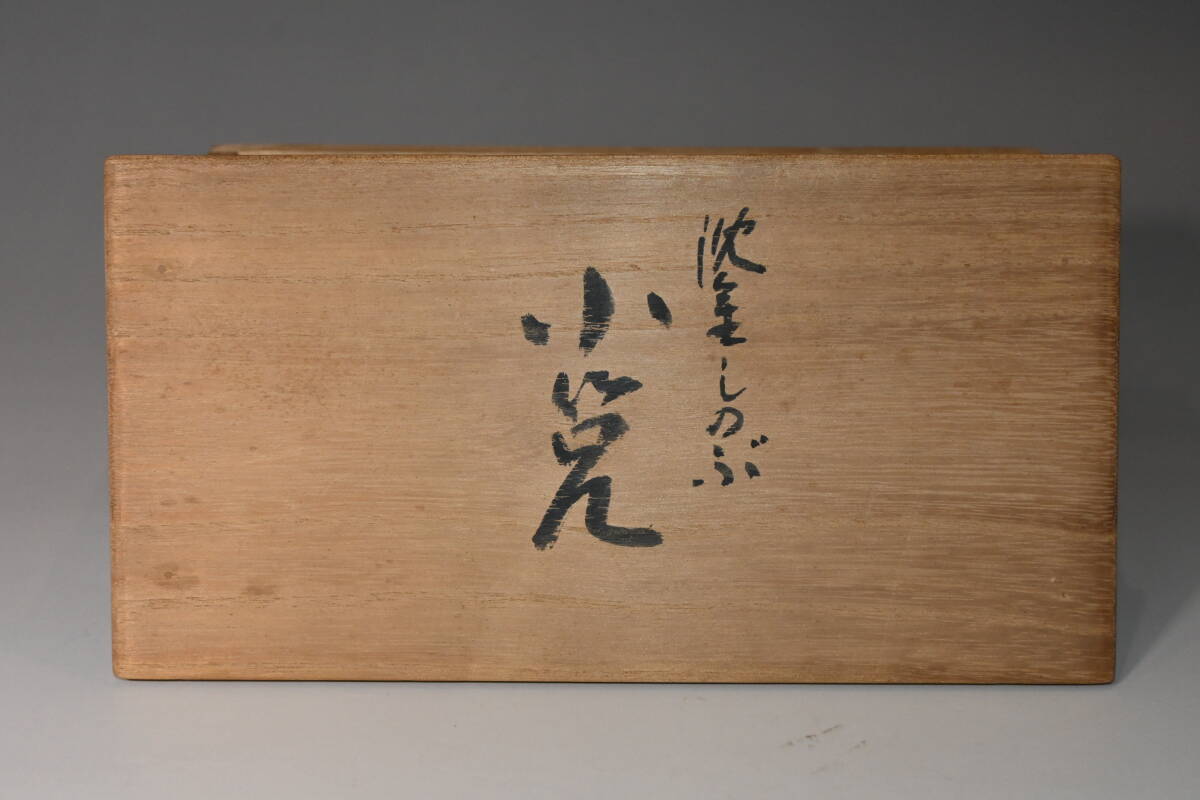 沈金しのぶ
小筥